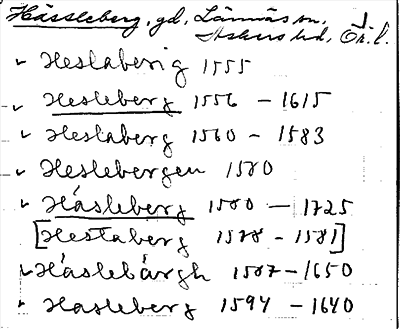 Hässleberg, gd, Lännäs sn,
Askers hd, Ör. l.
Heslaberig 1555
Hesleberg 1556 – 1615
Heslaberg 1560 – 1583
Heslebergen 1580
Håsleberg 1580 – 1725
[Hestaberg 1578 – 1581]
Håslebårgh 1587–1650
Hasleberg 1594 – 1640